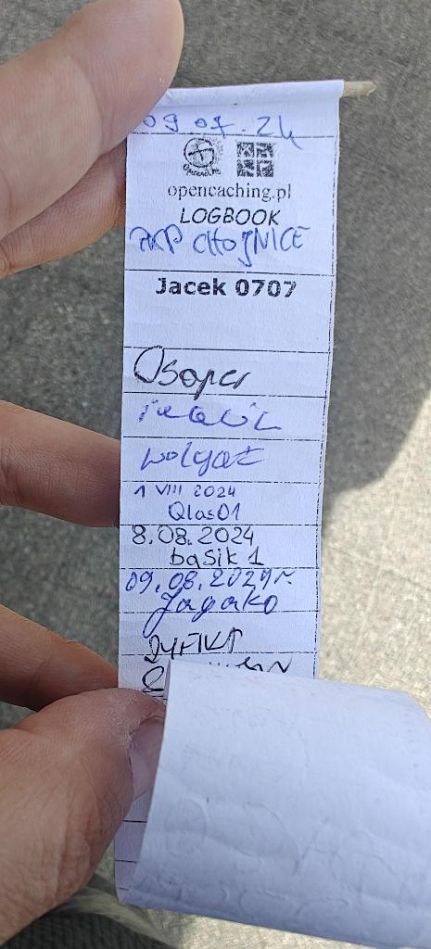 09.07.24
opencaching.pl
LOGBOOK
PKP CHOJNICE
Jacek 0707
Osoper
wolgat
1 VIII 2024
Qlas01
8.08.2024
basik 1
09.08.2024r.
Jagako